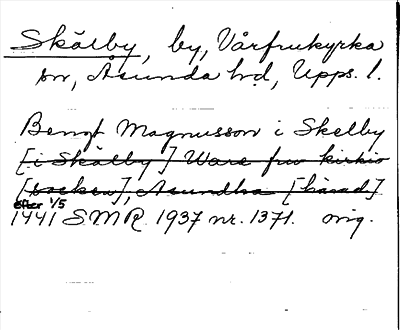 Skälby, by, Vårfrukyrka
sn, Åsunda hd, Upps. l.
Bengt Magnusson i Skelby
[i Skälby] Ware fru kirkio
[socken], Asundha [härad]
efter 1/5
1441 SMR 1937 nr. 1371. orig.